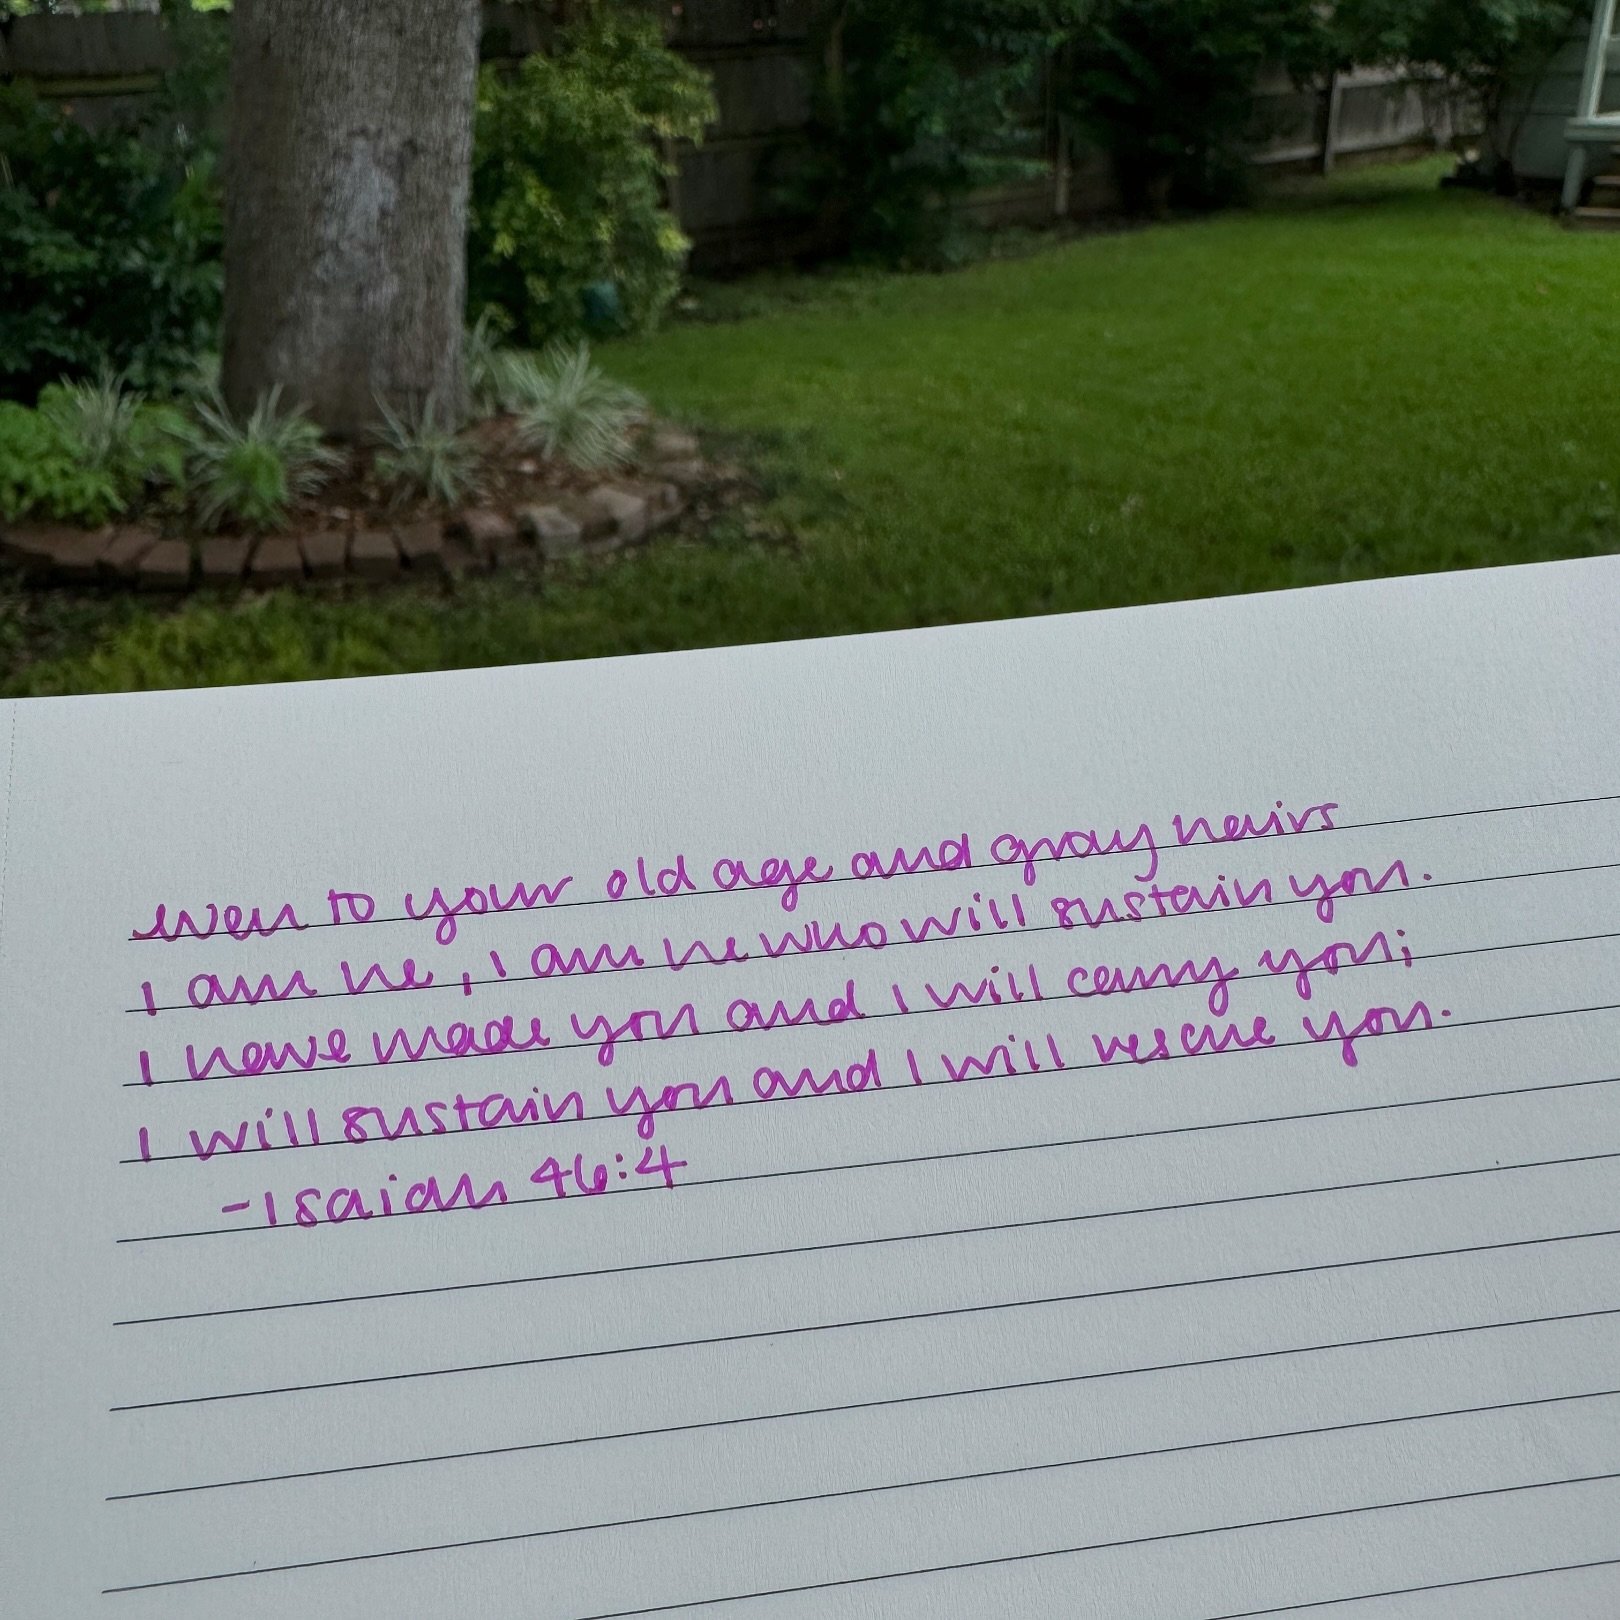 even to your old age and gray hairs
I am he, I am he who will sustain you.
I have made you and I will carry you;
I will sustain you and I will rescue you.
-Isaiah 46:4